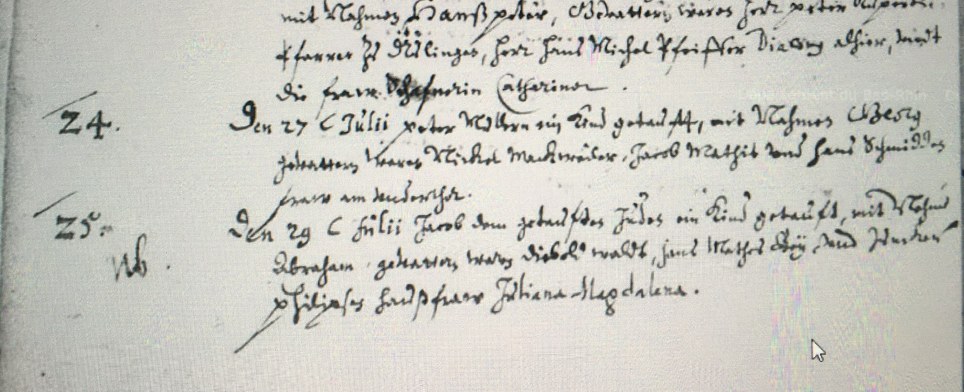 mit Nahmen Hanß peter, Gevattern waren Herr peter
Pfarrer zu Dislingen, Herr Hans Michel Pfeiffer Diacony alhier, undt
die fraw Schafnerin Catharina.
24. Den 27 Julii peter Müllern ein Kind getaufft, mit Nahmen Georg
gevattern waren Nickel, Jacob Mathis und Hans Schmidten
fraw am.
25. Den 29 Julii Jacob dem getaufften Juden ein Kind getaufft, mit Nahmen
Nb. Abraham gevattern waren diebolt waldt, Hans Mathes, und
philipses haußfraw Juliana Magdalena.